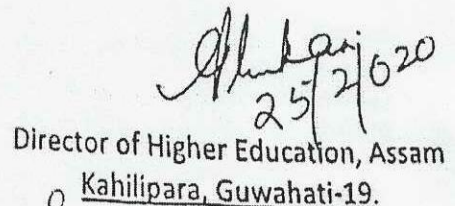 25/2/2020
Director of Higher Education, Assam
Kahilipara, Guwahati-19.